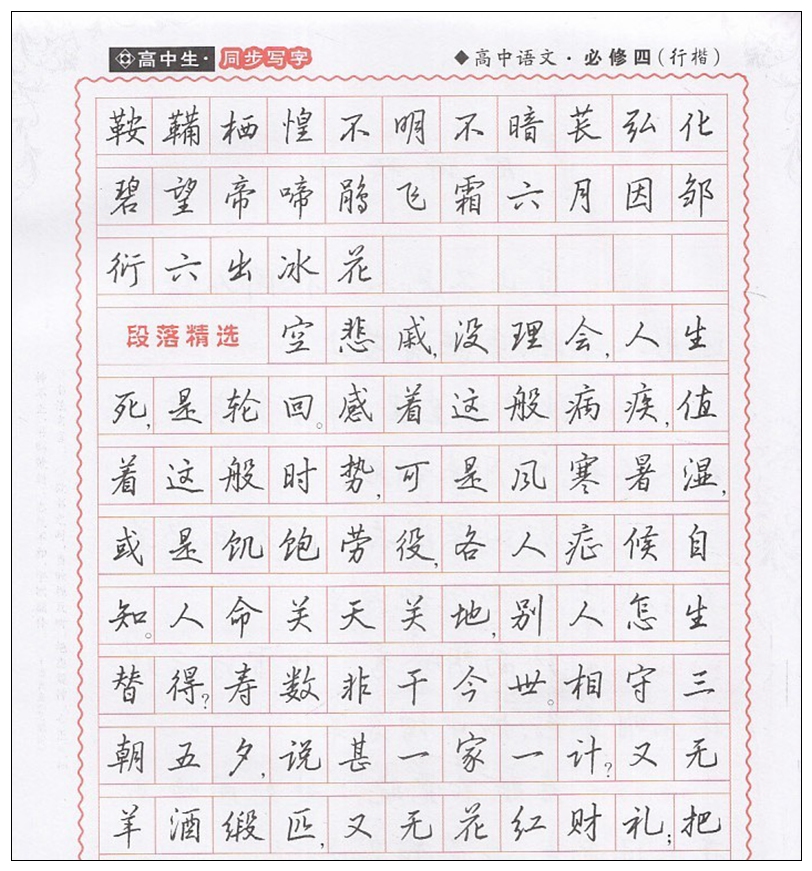 高中生· 同步写字 ◆高中语文·必修四(行楷)
鞍鞴栖惶不明不暗苌弘化
碧望帝啼鹃飞霜六月因邹
衍六出冰花
段落精选 空悲戚,没理会,人生
死,是轮回。感着这般病疾,值
着这般时势,可是风寒暑湿,
或是饥饱劳役,各人症候自
知。人命关天关地,别人怎生
替得?寿数非干今世。相守三
朝五夕,说甚一家一计?又无
羊酒缎匹,又无花红财礼;把